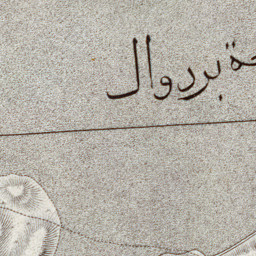 بردوال